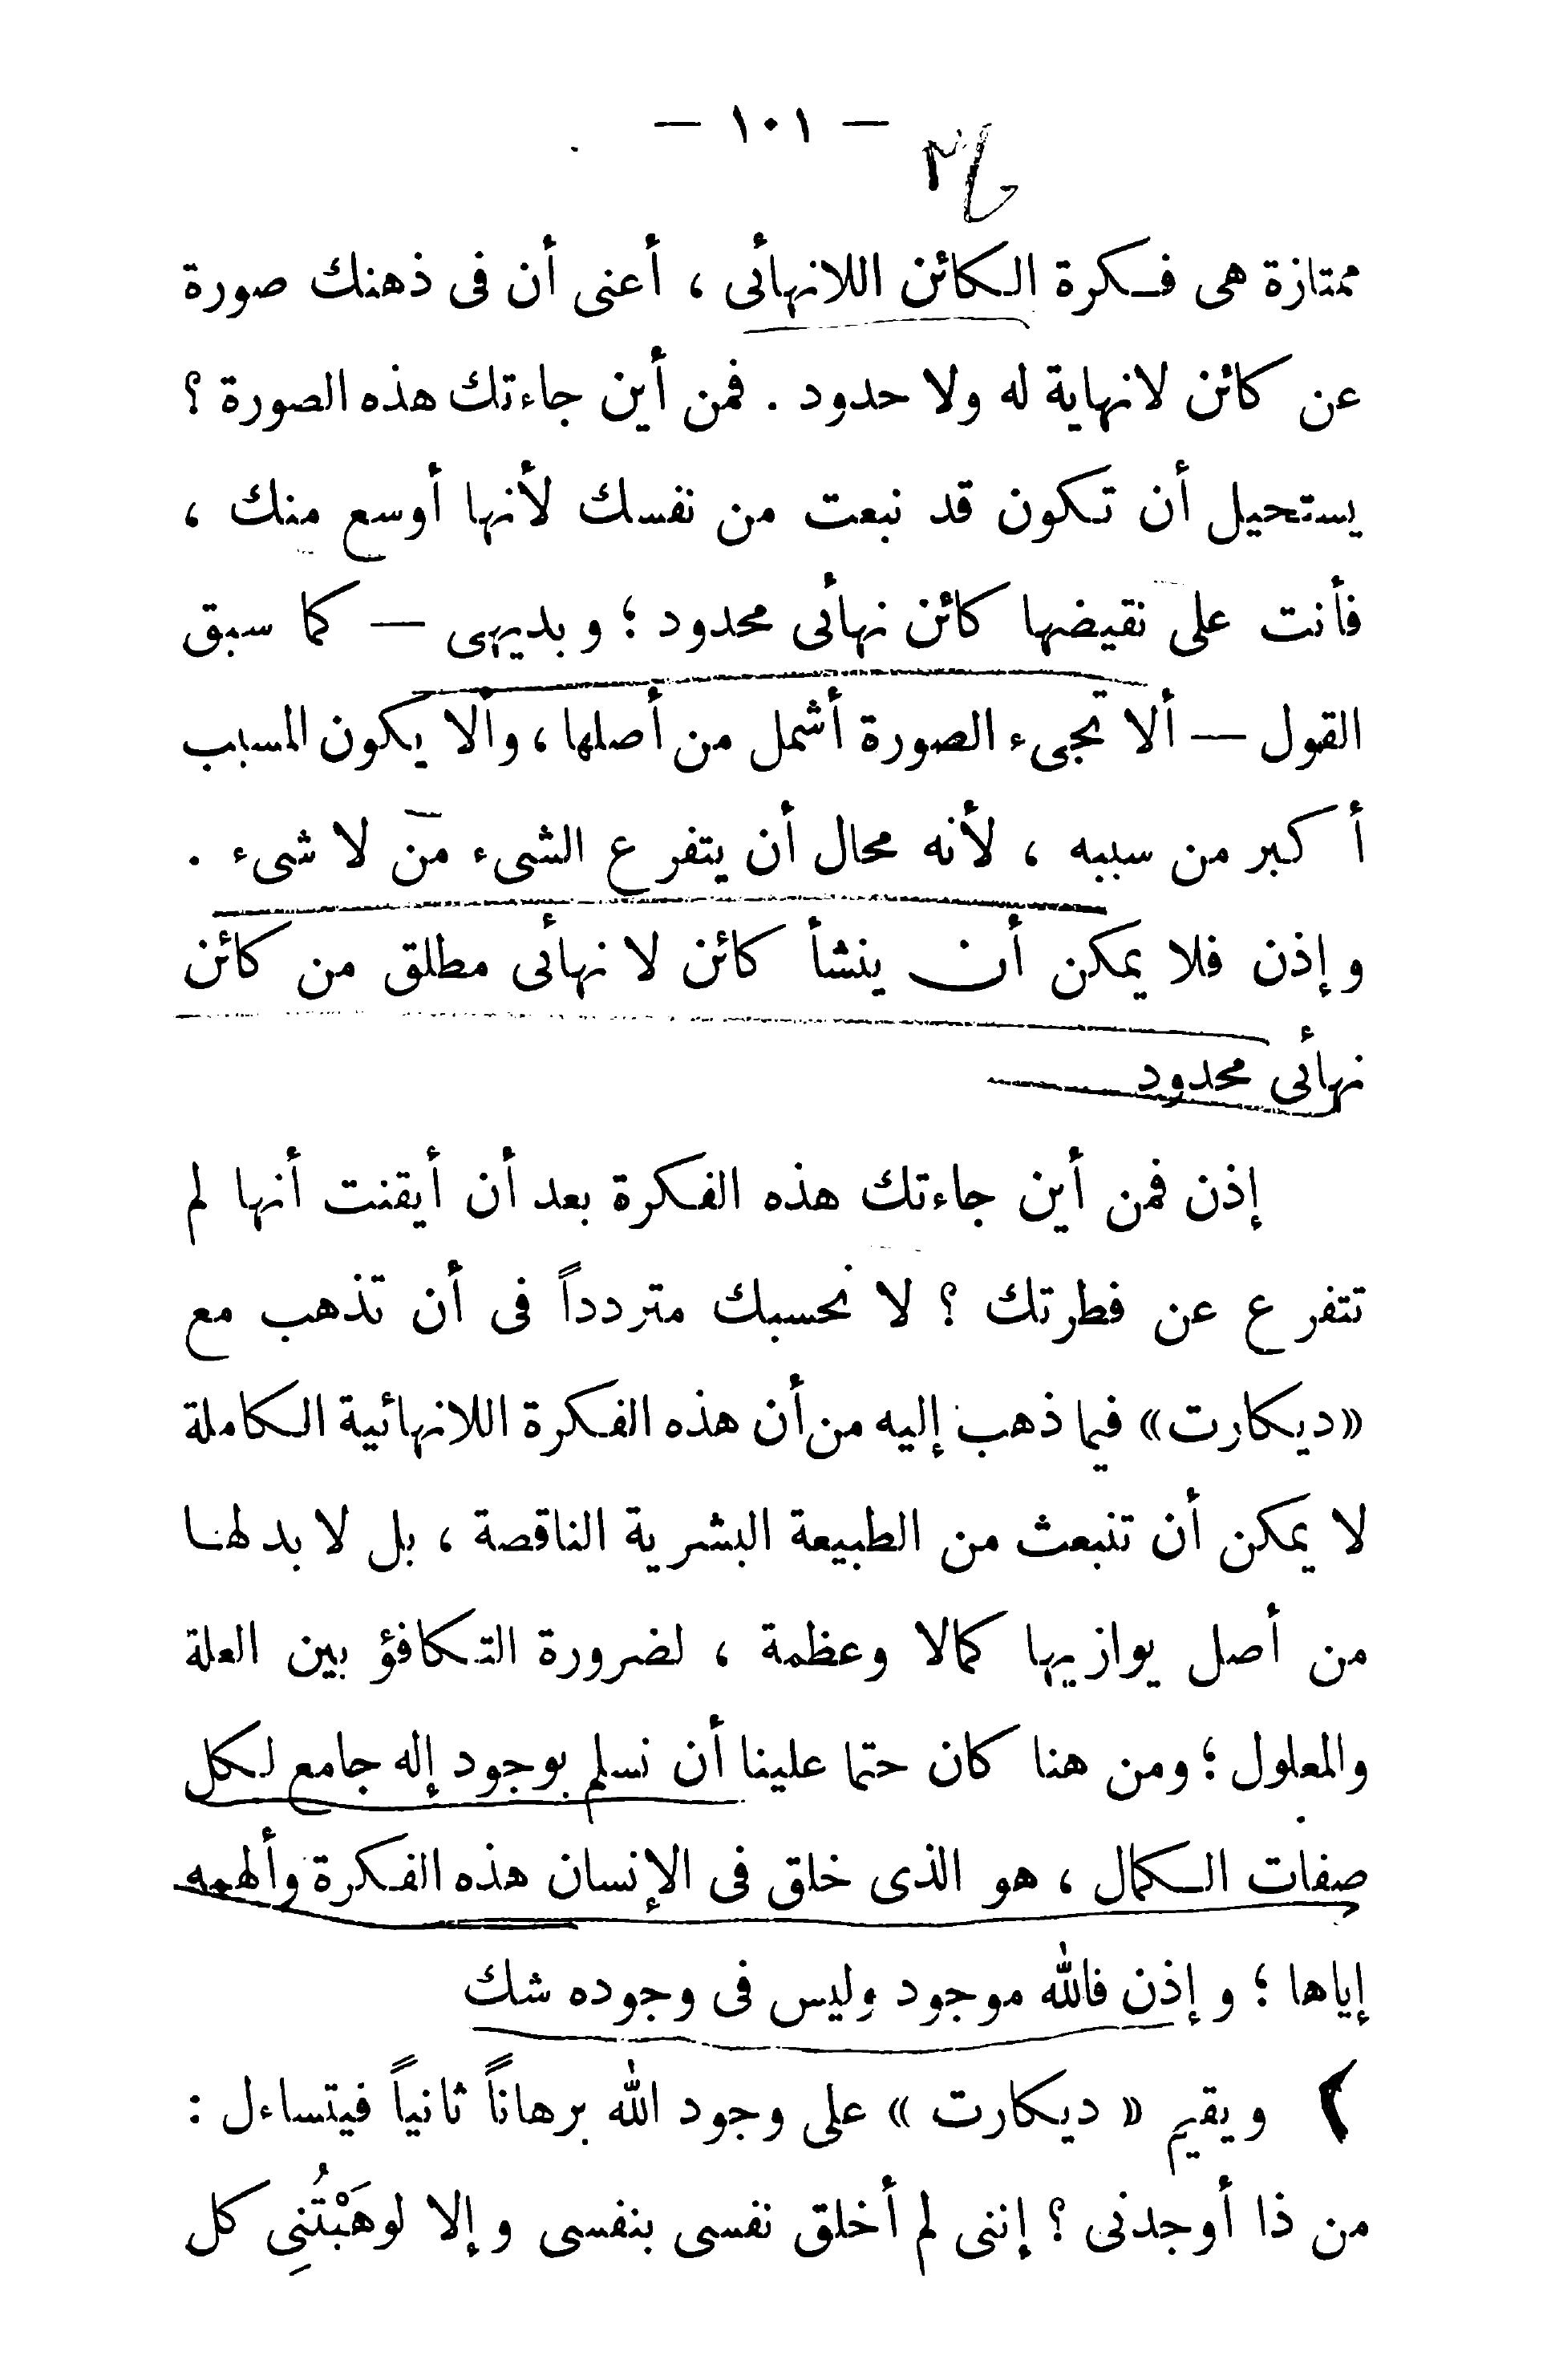 — ١٠١ —
ممتازة هى فكرة الكائن اللانهائى ، أعنى أن فى ذهنك صورة
عن كائن لانهاية له ولا حدود . فمن أين جاءتك هذه الصورة ؟
يستحيل أن تكون قد نبعت من نفسك لأنها أوسع منك ،
فأنت على نقيضها كائن نهائى محدود ؛ وبديهى — كما سبق
القول — ألا تجىء الصورة أشمل من أصلها ، وألا يكون المسبب
أكبر من سببه ، لأنه محال أن يتفرع الشىء من لا شىء .
وإذن فلا يمكن أن ينشأ كائن لا نهائى مطلق من كائن
نهائى محدود
إذن فمن أين جاءتك هذه الفكرة بعد أن أيقنت أنها لم
تتفرع عن فطرتك ؟ لا نحسبك متردداً فى أن تذهب مع
«ديكارت» فيما ذهب إليه من أن هذه الفكرة اللانهائية الكاملة
لا يمكن أن تنبعث من الطبيعة البشرية الناقصة ، بل لا بد لها
من أصل يوازيها كمالا وعظمة ، لضرورة التكافؤ بين العلة
والمعلول ؛ ومن هنا كان حتما علينا أن نسلم بوجود إله جامع لكل
صفات الكمال ، هو الذى خلق فى الإنسان هذه الفكرة وألهمه
إياها ؛ وإذن فالله موجود وليس فى وجوده شك
ويقيم « ديكارت » على وجود الله برهاناً ثانياً فيتساءل :
من ذا أوجدنى ؟ إننى لم أخلق نفسى بنفسى وإلا لوهَبْتُنِى كل